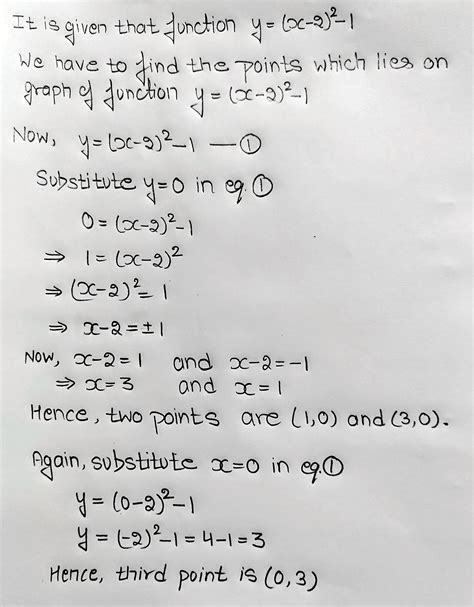 It is given that function y=(x-2)²-1
We have to find the points which lies on
graph of function y=(x-2)²-1
Now, y=(x-2)²-1 —①
Substitute y=0 in eq.①
0=(x-2)²-1
⇒ 1=(x-2)²
⇒ (x-2)²=1
⇒ x-2=±1
Now, x-2=1 and x-2=-1
⇒ x=3 and x=1
Hence, two points are (1,0) and (3,0).
Again, substitute x=0 in eq.①
y=(0-2)²-1
y=(-2)²-1=4-1=3
Hence, third point is (0,3)